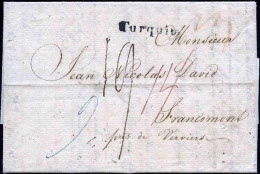 Turquie
Monsieur
Jean Nicolas David
Francimont
près de Verviers